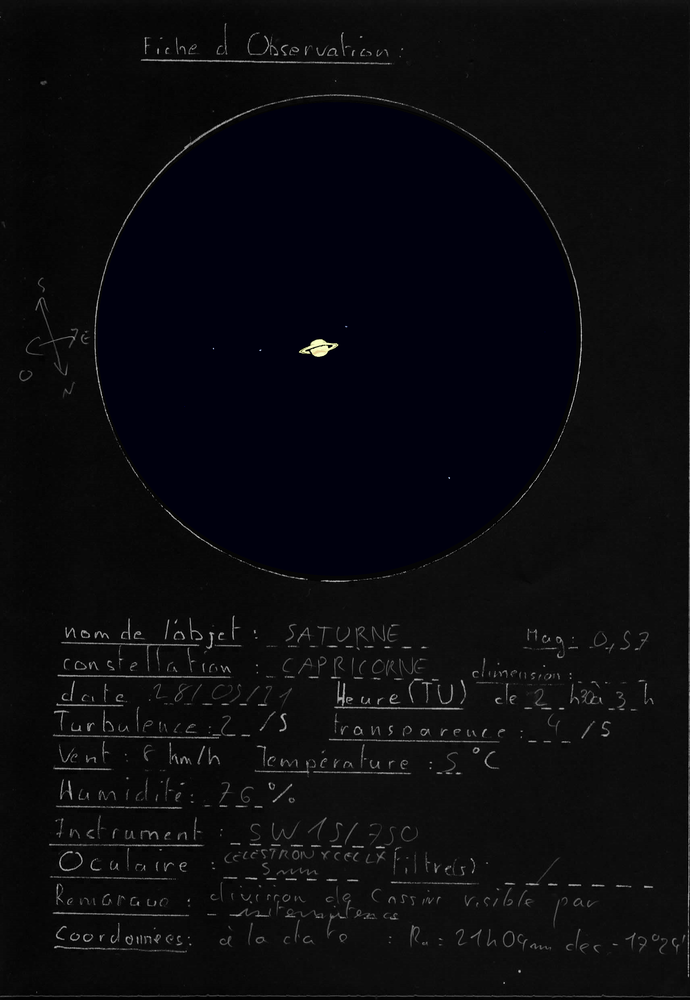 Fiche d Observation :
S
E
O
N
nom de l'objet : SATURNE Mag : 0,57
constellation : CAPRICORNE dimension :
date 28/05/21 Heure (TU) de 2 h 32 à 3 h
Turbulence : 2 /5 transparence : 4 /5
Vent : 8 km/h Température : 5 °C
Humidité : 76 %
Instrument : SW 15/750
Oculaire : CELESTRON X CEL LX Filtre(s) : /
5 mm
Remarque : division de Cassini visible par
Coordonnées : à la date : Ra : 21h04m dec -17°24'